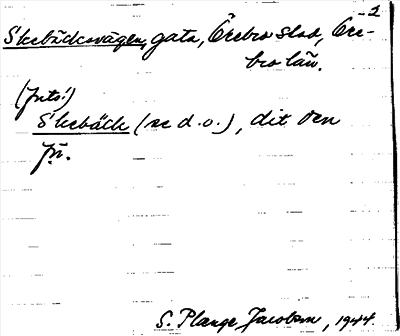 2
Skebäcksvägen, gata, Örebro stad, Öre-
bro län.
Skebäck (se d.o.), dit den
S. Plange Jacobson, 1944